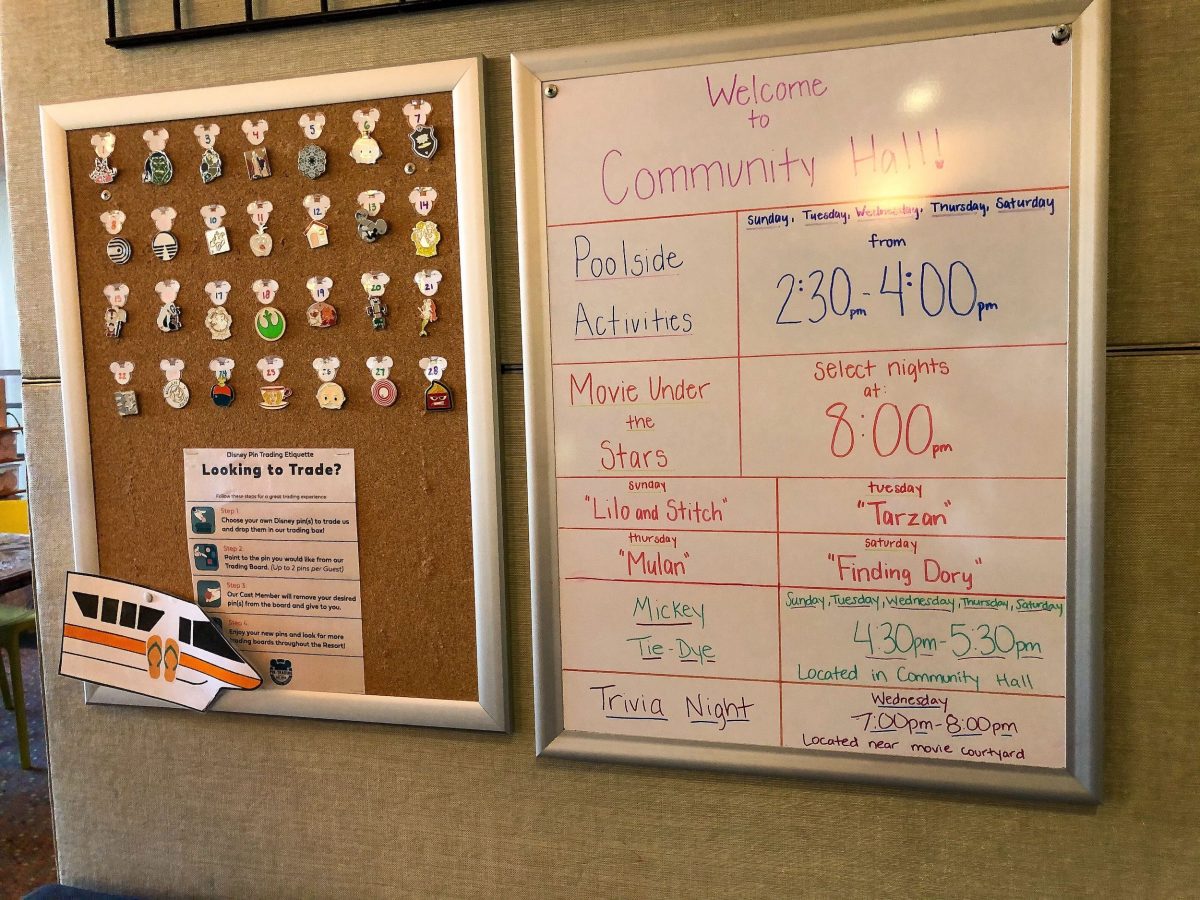 1 2 3 4 5 6 7
8 9 10 11 12 13 14
15 16 17 18 19 20 21
22 23 24 25 26 27 28
Disney Pin Trading Etiquette
Looking to Trade?
Follow these steps for a great trading experience
Step 1
Choose your own Disney pin(s) to trade us
and drop them in our trading box!
Step 2.
Point to the pin you would like from our
Trading Board. (Up to 2 pins per Guest)
Step 3
Our Cast Member will remove your desired
pin(s) from the board and give to you.
Step 4
Enjoy your new pins and look for more
trading boards throughout the Resort!
Welcome
to
Community Hall!
Poolside
Activities
Sunday, Tuesday, Wednesday, Thursday, Saturday
from
2:30pm - 4:00pm
Movie Under
the
Stars
Select nights
at:
8:00pm
Sunday
"Lilo and Stitch"
Tuesday
"Tarzan"
Thursday
"Mulan"
Saturday
"Finding Dory"
Mickey
Tie-Dye
Sunday, Tuesday, Wednesday, Thursday, Saturday
4:30pm-5:30pm
Located in Community Hall
Trivia Night
Wednesday
7:00pm-8:00pm
Located near movie courtyard